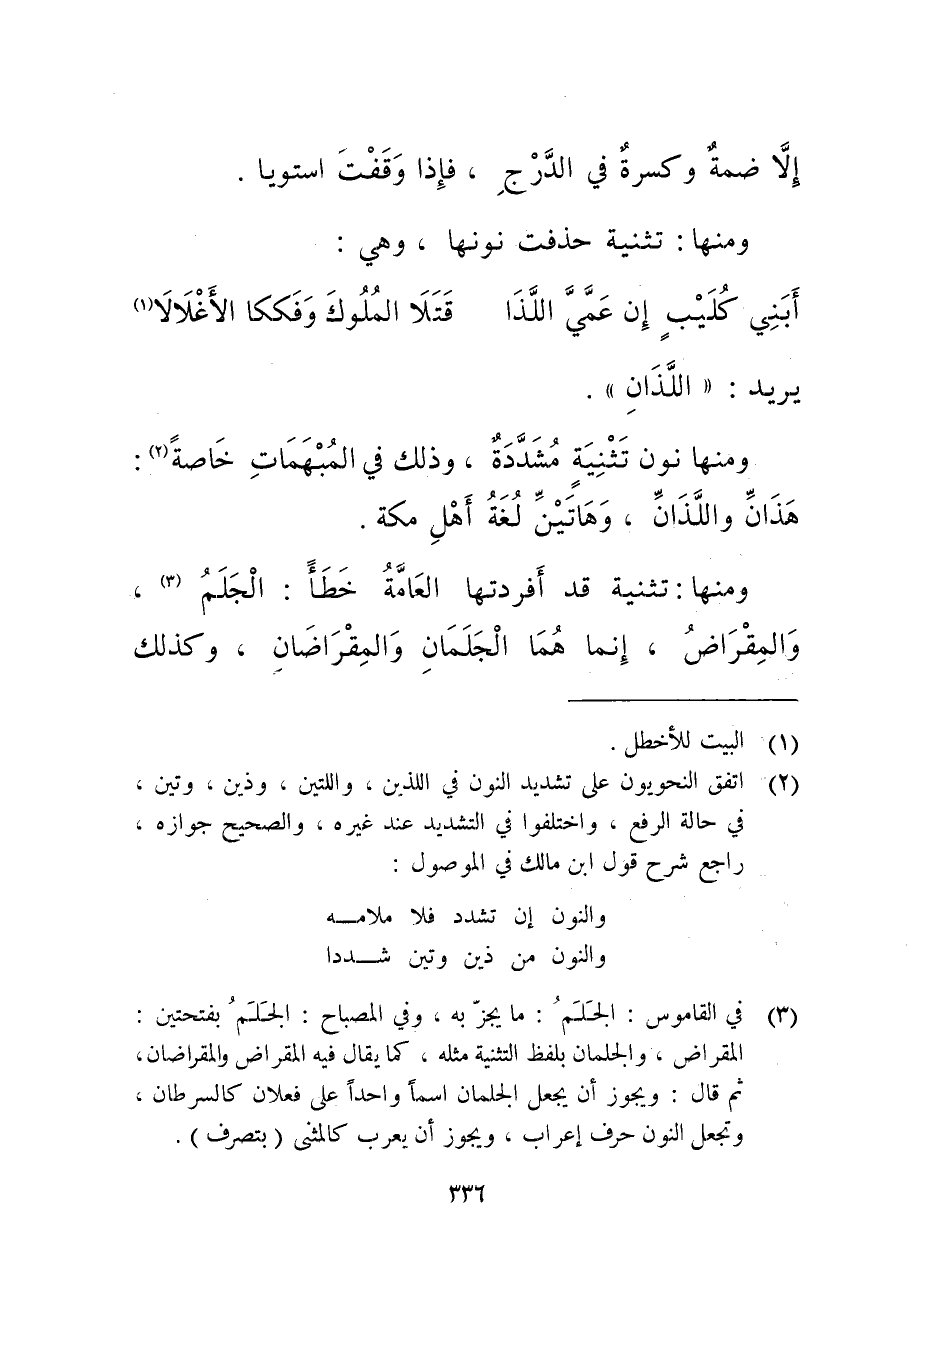 إِلَّا ضمةٌ وكسرةٌ في الدَّرْجِ ، فإِذا وَقَفْتَ استويا .
ومنها : تثنية حذفت نونها ، وهي :
أَبَنِي كُلَيْبٍ إِن عَمَّيَّ اللَّذَا قَتَلَا المُلُوكَ وَفَككا الأَغْلَالَا(١)
يريد : « اللَّذَانِ » .
ومنها نون تَثْنِيَةٍ مُشَدَّدَةٌ ، وذلك في المُبْهَمَاتِ خَاصةً(٢) :
هَذَانِّ واللَّذَانِّ ، وَهَاتَيْنِّ لُغَةُ أَهْلِ مكة .
ومنها : تثنية قد أَفردتها العَامَّةُ خَطَأً : الْجَلَمُ (٣) ،
وَالمِقْرَاضُ ، إِنما هُمَا الْجَلَمَانِ وَالمِقْرَاضَانِ ، وكذلك
(١) البيت للأخطل .
(٢) اتفق النحويون على تشديد النون في اللذين ، واللتين ، وذين ، وتين ،
في حالة الرفع ، واختلفوا في التشديد عند غيره ، والصحيح جوازه ،
راجع شرح قول ابن مالك في الموصول :
والنون إن تشدد فلا ملامـــه
والنون من ذين وتين شـــددا
(٣) في القاموس : الجَلَمُ : ما يجزّ به ، وفي المصباح : الجَلَمُ بفتحتين :
المقراض ، والجلمان بلفظ التثنية مثله ، كما يقال فيه المقراض والمقراضان،
ثم قال : ويجوز أن يجعل الجلمان اسماً واحداً على فعلان كالسرطان ،
وتجعل النون حرف إعراب ، ويجوز أن يعرب كالمثنى ( بتصرف ) .
٣٣٦